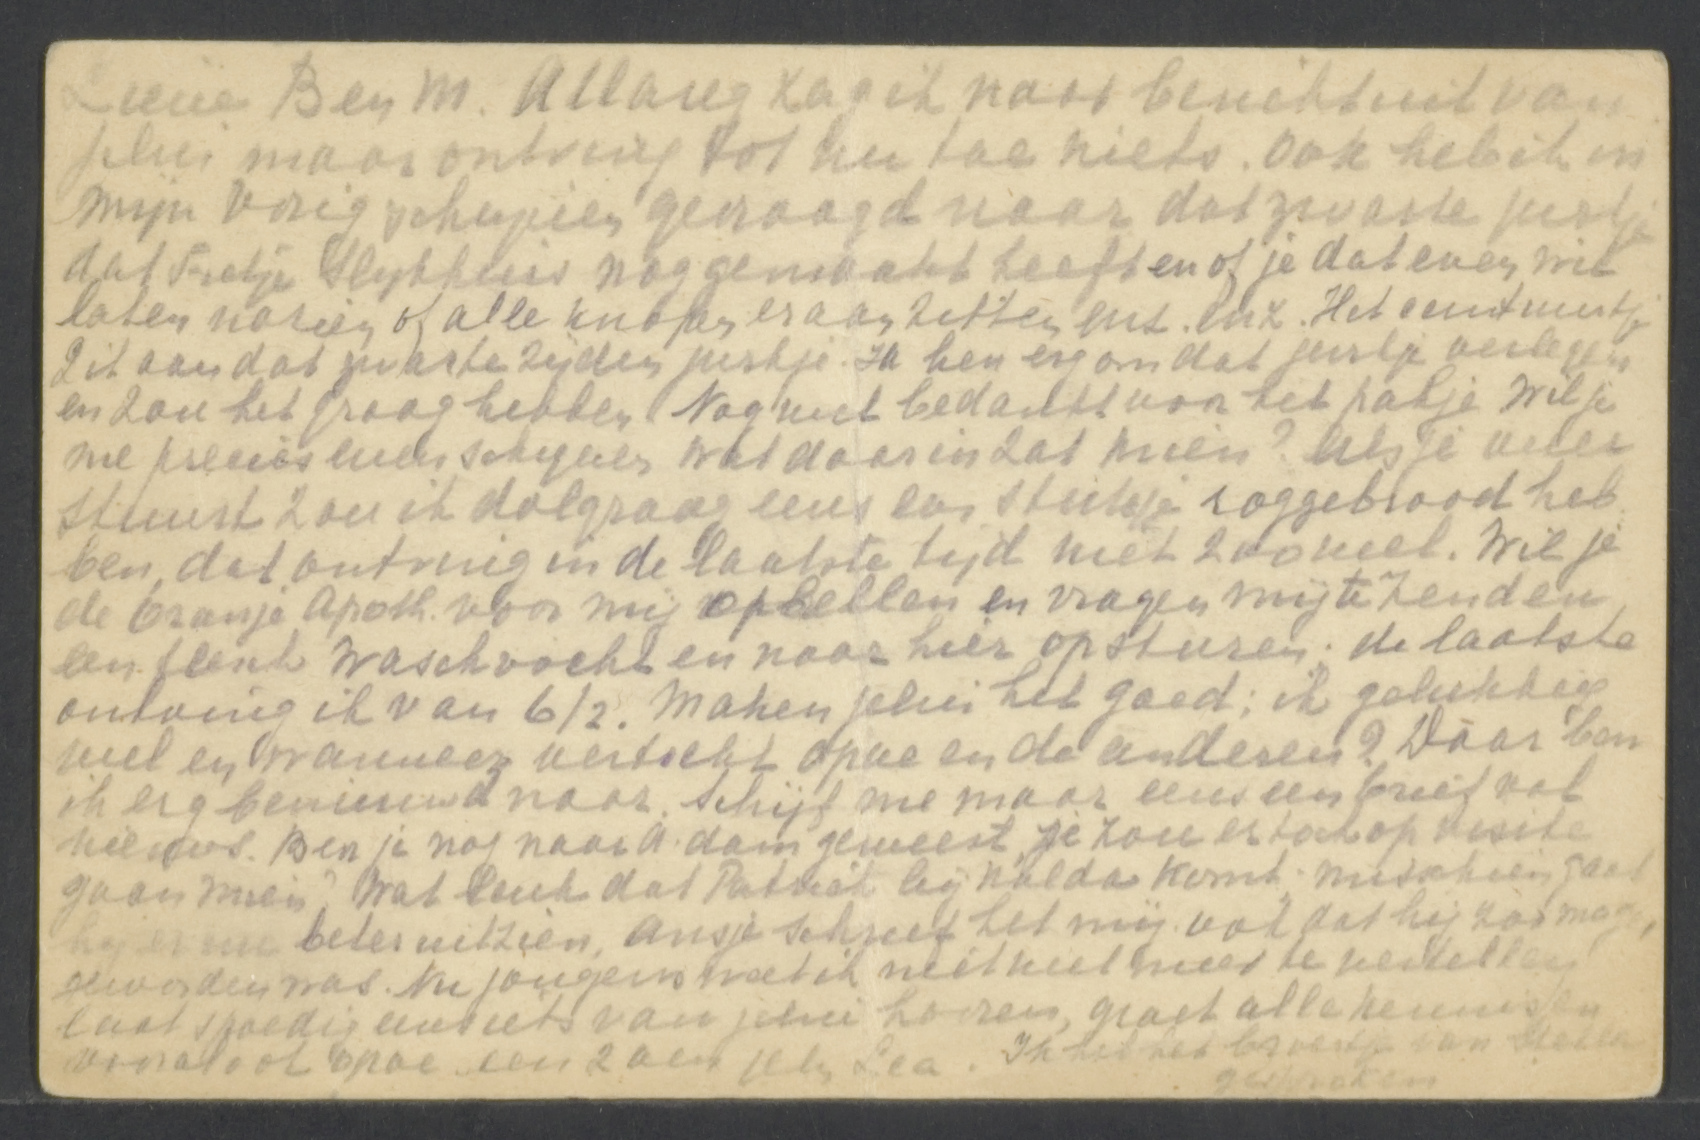 Lieve Ben M. Allang zag ik naar bericht uit van
jelui maar ontving tot nu toe niets. Ook heb ik in
mijn vorig schrijven gevraagd naar dat zwarte jurkje
dat Slijkhuis nog gemaakt heeft en of je dat even wil
laten nazien of alle knopen eraan zitten enz. enz. Het
zit aan dat zwarte zijden jurkje. Ik ben erg om dat jurkje verlegen
en zou het graag hebben. Nog wel bedankt voor het pakje. Wil je
me precies even schrijven wat daarin zat Mien? Als je weer
stuurt zou ik dolgraag eens een stukje roggebrood heb
ben, dat ontving in de laatste tijd niet zooveel. Wil je
de Oranje Apoth. voor mij opbellen en vragen mij te zenden
een flesch waschvocht en naar hier opsturen; de laatste
ontving ik van 6/2. Maken jelui het goed; ik gelukkig
wel en wanneer vertrekt opoe en de anderen? Daar ben
ik erg benieuwd naar. Schrijf me maar eens een brief vol
nieuws. Ben je nog naar A.dam geweest, je zou er toch op visite
gaan Mien? Wat leuk dat bij Nolda komt. misschien gaat
hij er nu beter uitzien, Ansje schreef het mij ook dat hij zoo mager
geworden was. Nu jongens weet ik niet veel meer te vertellen
laat spoedig eens iets van jelui hooren, groet alle kennissen
vooral ook opoe een zoen jelui Lea. Ik heb het broertje van
gesproken